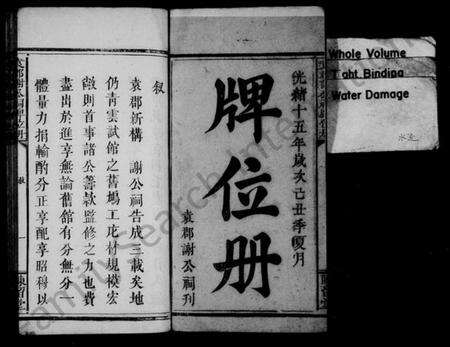 光緒十五年歲次己丑季夏月
牌位册
袁郡謝公祠刊
叙
袁郡新構 謝公祠告成三載矣地
仍靑雲試館之舊塲工庀材規模宏
敞則首事諸公籌款監修之力也費
盡出於進享無論舊館有分無分一
體量力捐輸酌分正享配享昭得以
叙
一
Whole Volume
Tight Binding
Water Damage
水渍
FamilySearch International